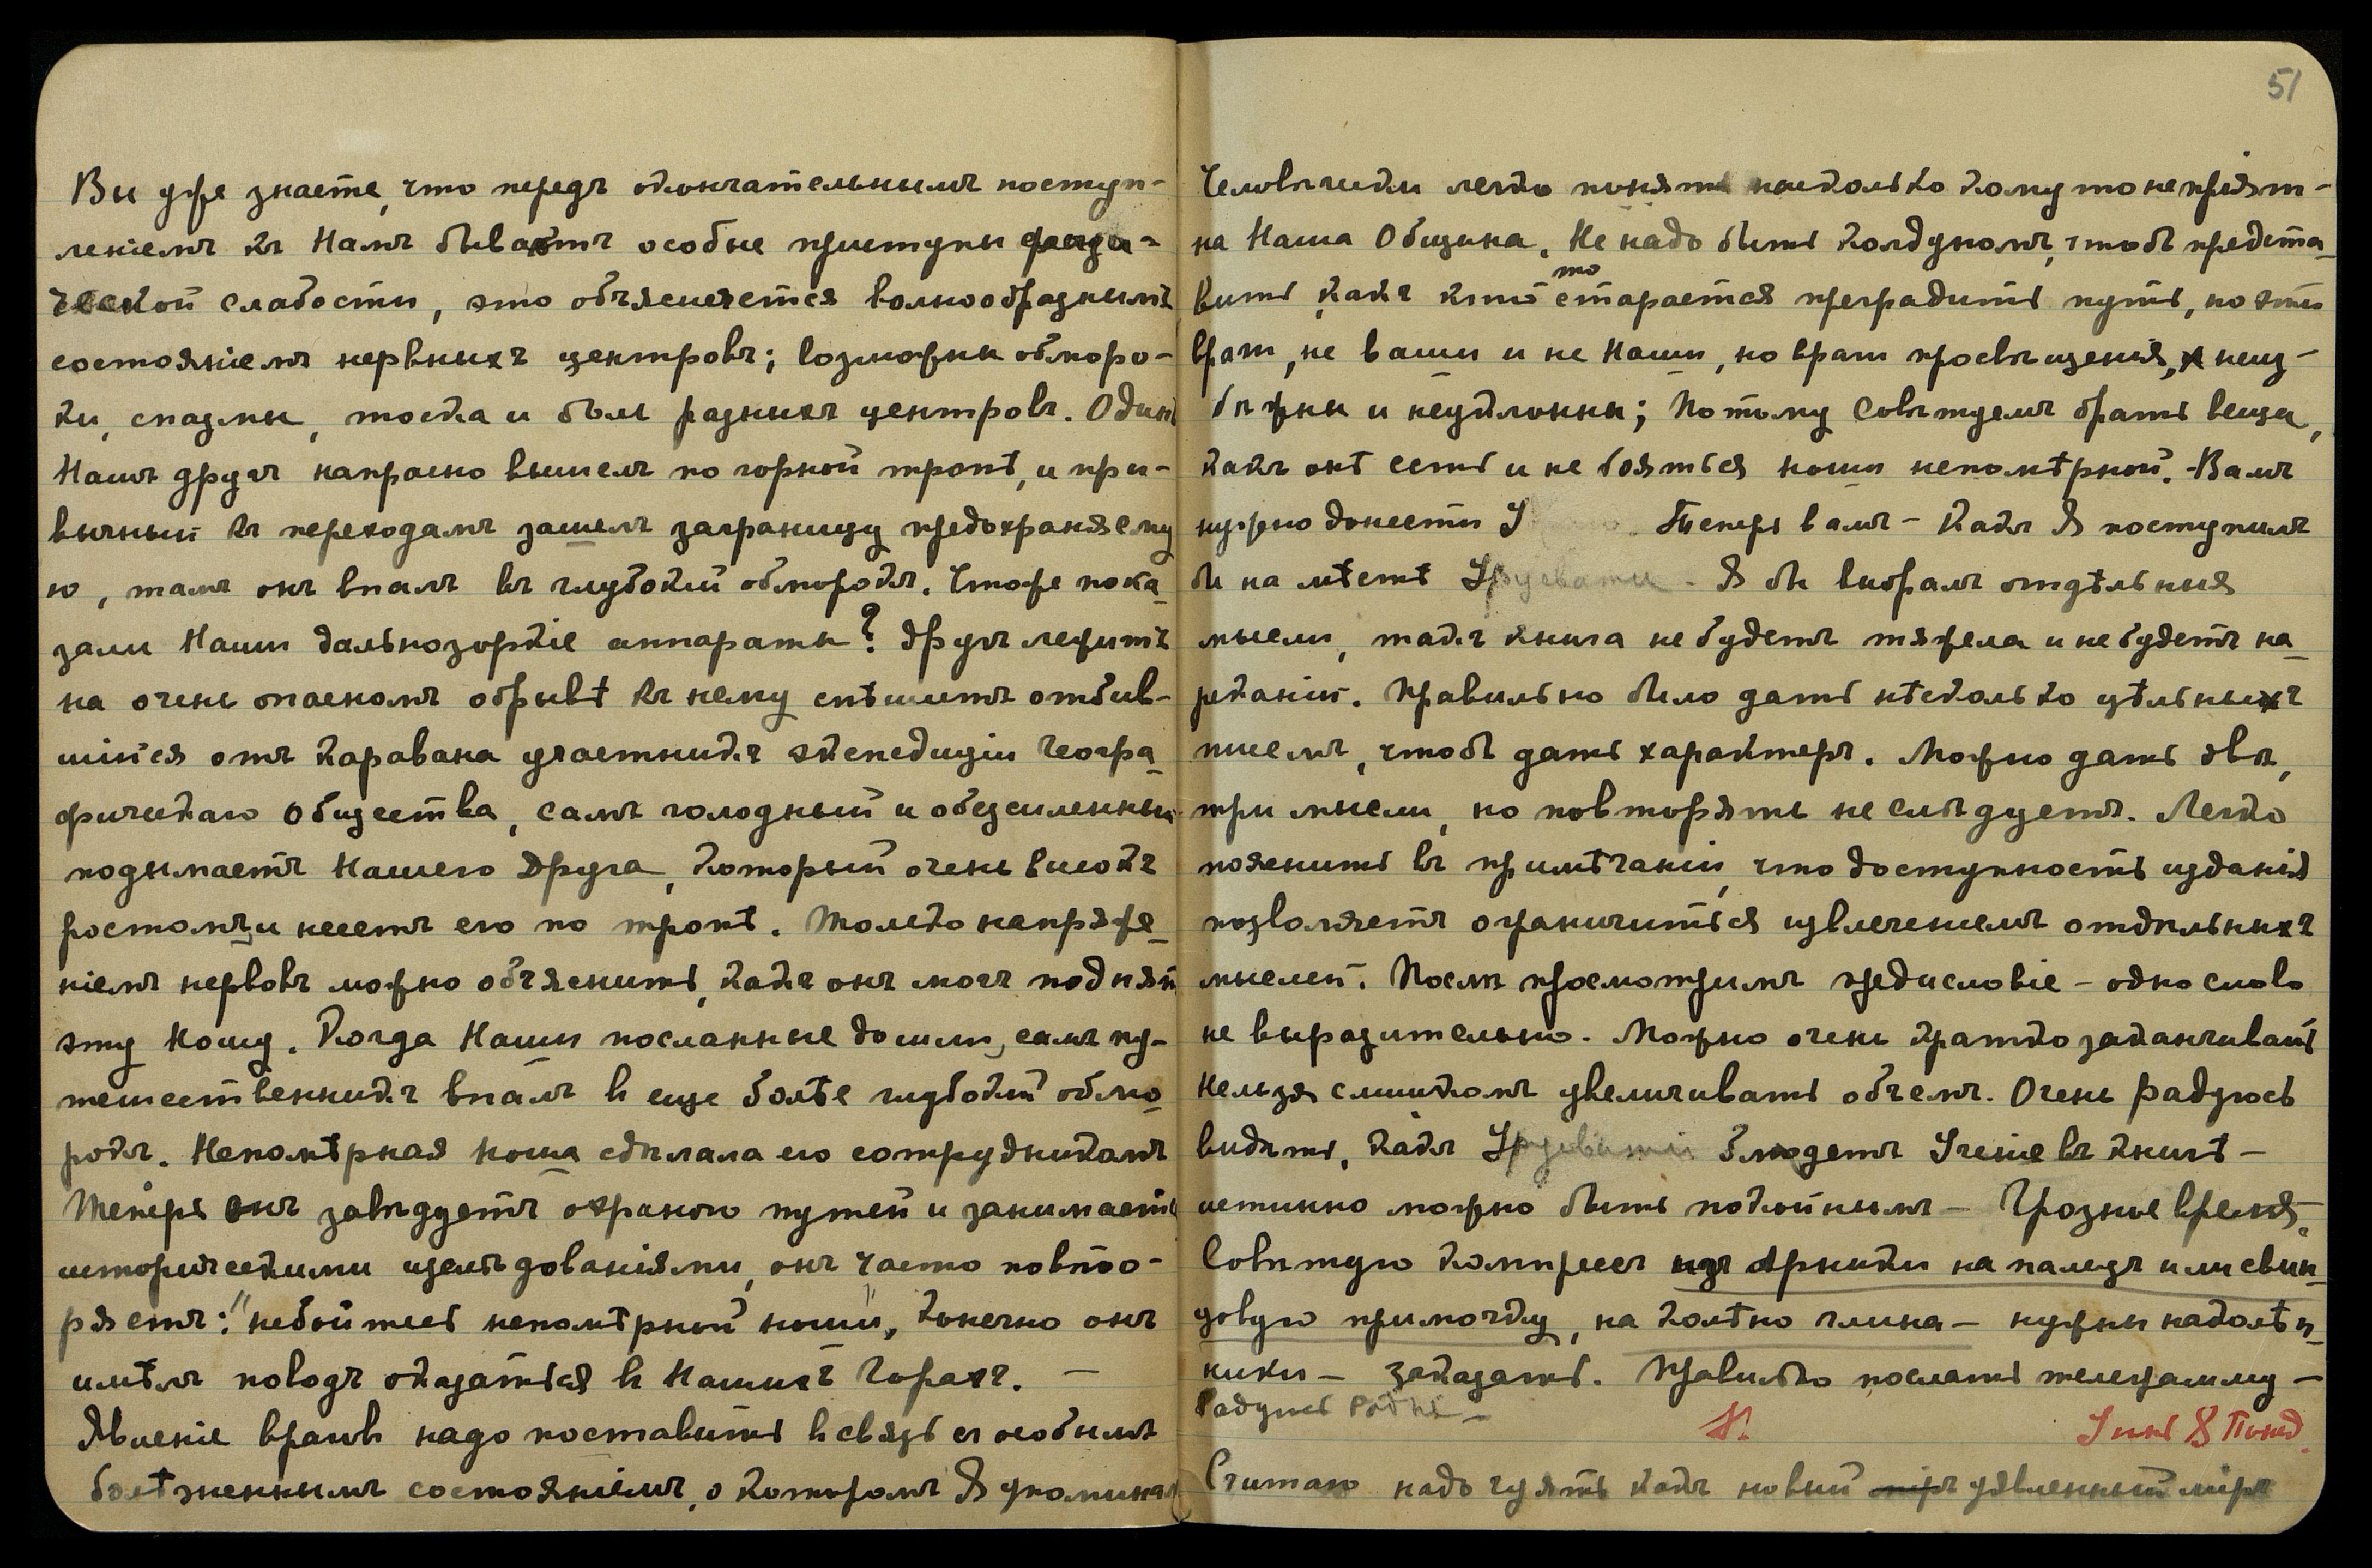 Вы уже знаете, что передъ окончательнымъ поступ-
леніемъ къ Намъ бываютъ особые приступы физи-
ческой слабости, это объясняется волнообразнымъ
состояніемъ нервныхъ центровъ; возможны обморо-
ки, спазмы, тоска и боли разныхъ центровъ. Одинъ
Нашъ другъ напрасно вышелъ по горной тропѣ, и при-
вычный къ переходамъ зашелъ заграницу предохраняему
ю, тамъ онъ впалъ въ глубокій обморокъ. Чтоже пока-
зали Наши дальнозоркіе аппараты? Другъ лежитъ
на очень опасномъ обрывѣ къ нему спѣшитъ отбив-
шійся отъ каравана участникъ экспедиціи Геогра-
фическаго Общества, самъ голодный и обезсиленный
подымаетъ Нашего Друга, который очень высокъ
ростомъ, и несетъ его по тропѣ. Только напряже-
ніемъ нервовъ можно объяснить, какъ онъ могъ поднять
эту ношу. Когда Наши посланные дошли, самъ пу-
тешественникъ впалъ в еще болѣе глубокій обмо-
рокъ. Непомѣрная ноша сдѣлала его сотрудникомъ
Теперь онъ завѣдуетъ охраною путей и занимается
историческими изслѣдованіями, онъ часто повто-
ряетъ: "небойтесь непомѣрной ноши", конечно онъ
имѣлъ поводъ оказаться в Нашихъ Горахъ. —
Явленіе враговъ надо поставить в связь съ особымъ
болѣзненнымъ состояніемъ, о которомъ Я упоминалъ
51
Человѣчески легко понять насколько кому то непріят-
на Наша Община. Не надо быть колдуномъ, чтобъ предста-
то
вить, какъ кто старается преградить путь, но эти
враги, не ваши и не Наши, но враги просвѣщенія, неиз-
бѣжны и неуклонны; Потому Совѣтуемъ брать вещи,
какъ онѣ есть и не бояться ноши непомѣрной. Вамъ
нужно донести У Теперь вамъ — Какъ Я поступилъ
бы на мѣстѣ Урусвати — Я бы выбралъ отдѣльныя
мысли, такъ книга не будетъ тяжела и не будетъ на-
реканій. Правильно было дать нѣсколько цѣльныхъ
писемъ, чтобъ дать характеръ. Можно дать двѣ,
три мысли, но повторять не слѣдуетъ. Легко
пояснить въ примѣчаніи, что доступность изданія
позволяетъ ограничиться извлеченіемъ отдѣльныхъ
мыслей. Послѣ просмотримъ предисловіе — одно слово
не выразительно. Можно очень кратко заканчивать
Нельзя слишкомъ увеличивать объемъ. Очень радуюсь
видѣть, какъ Урусвати блюдетъ Ученіе въ книгѣ —
истинно можно быть покойнымъ — Грозные времня.
Совѣтую компрессъ изъ арники на палецъ или свин-
цовую примочку, на колѣно глина — нужны наколѣн-
ники — заказать. Правильно послать телеграмму —
Радуюсь
Считаю надо чуять какъ новый міръ явленный міръ